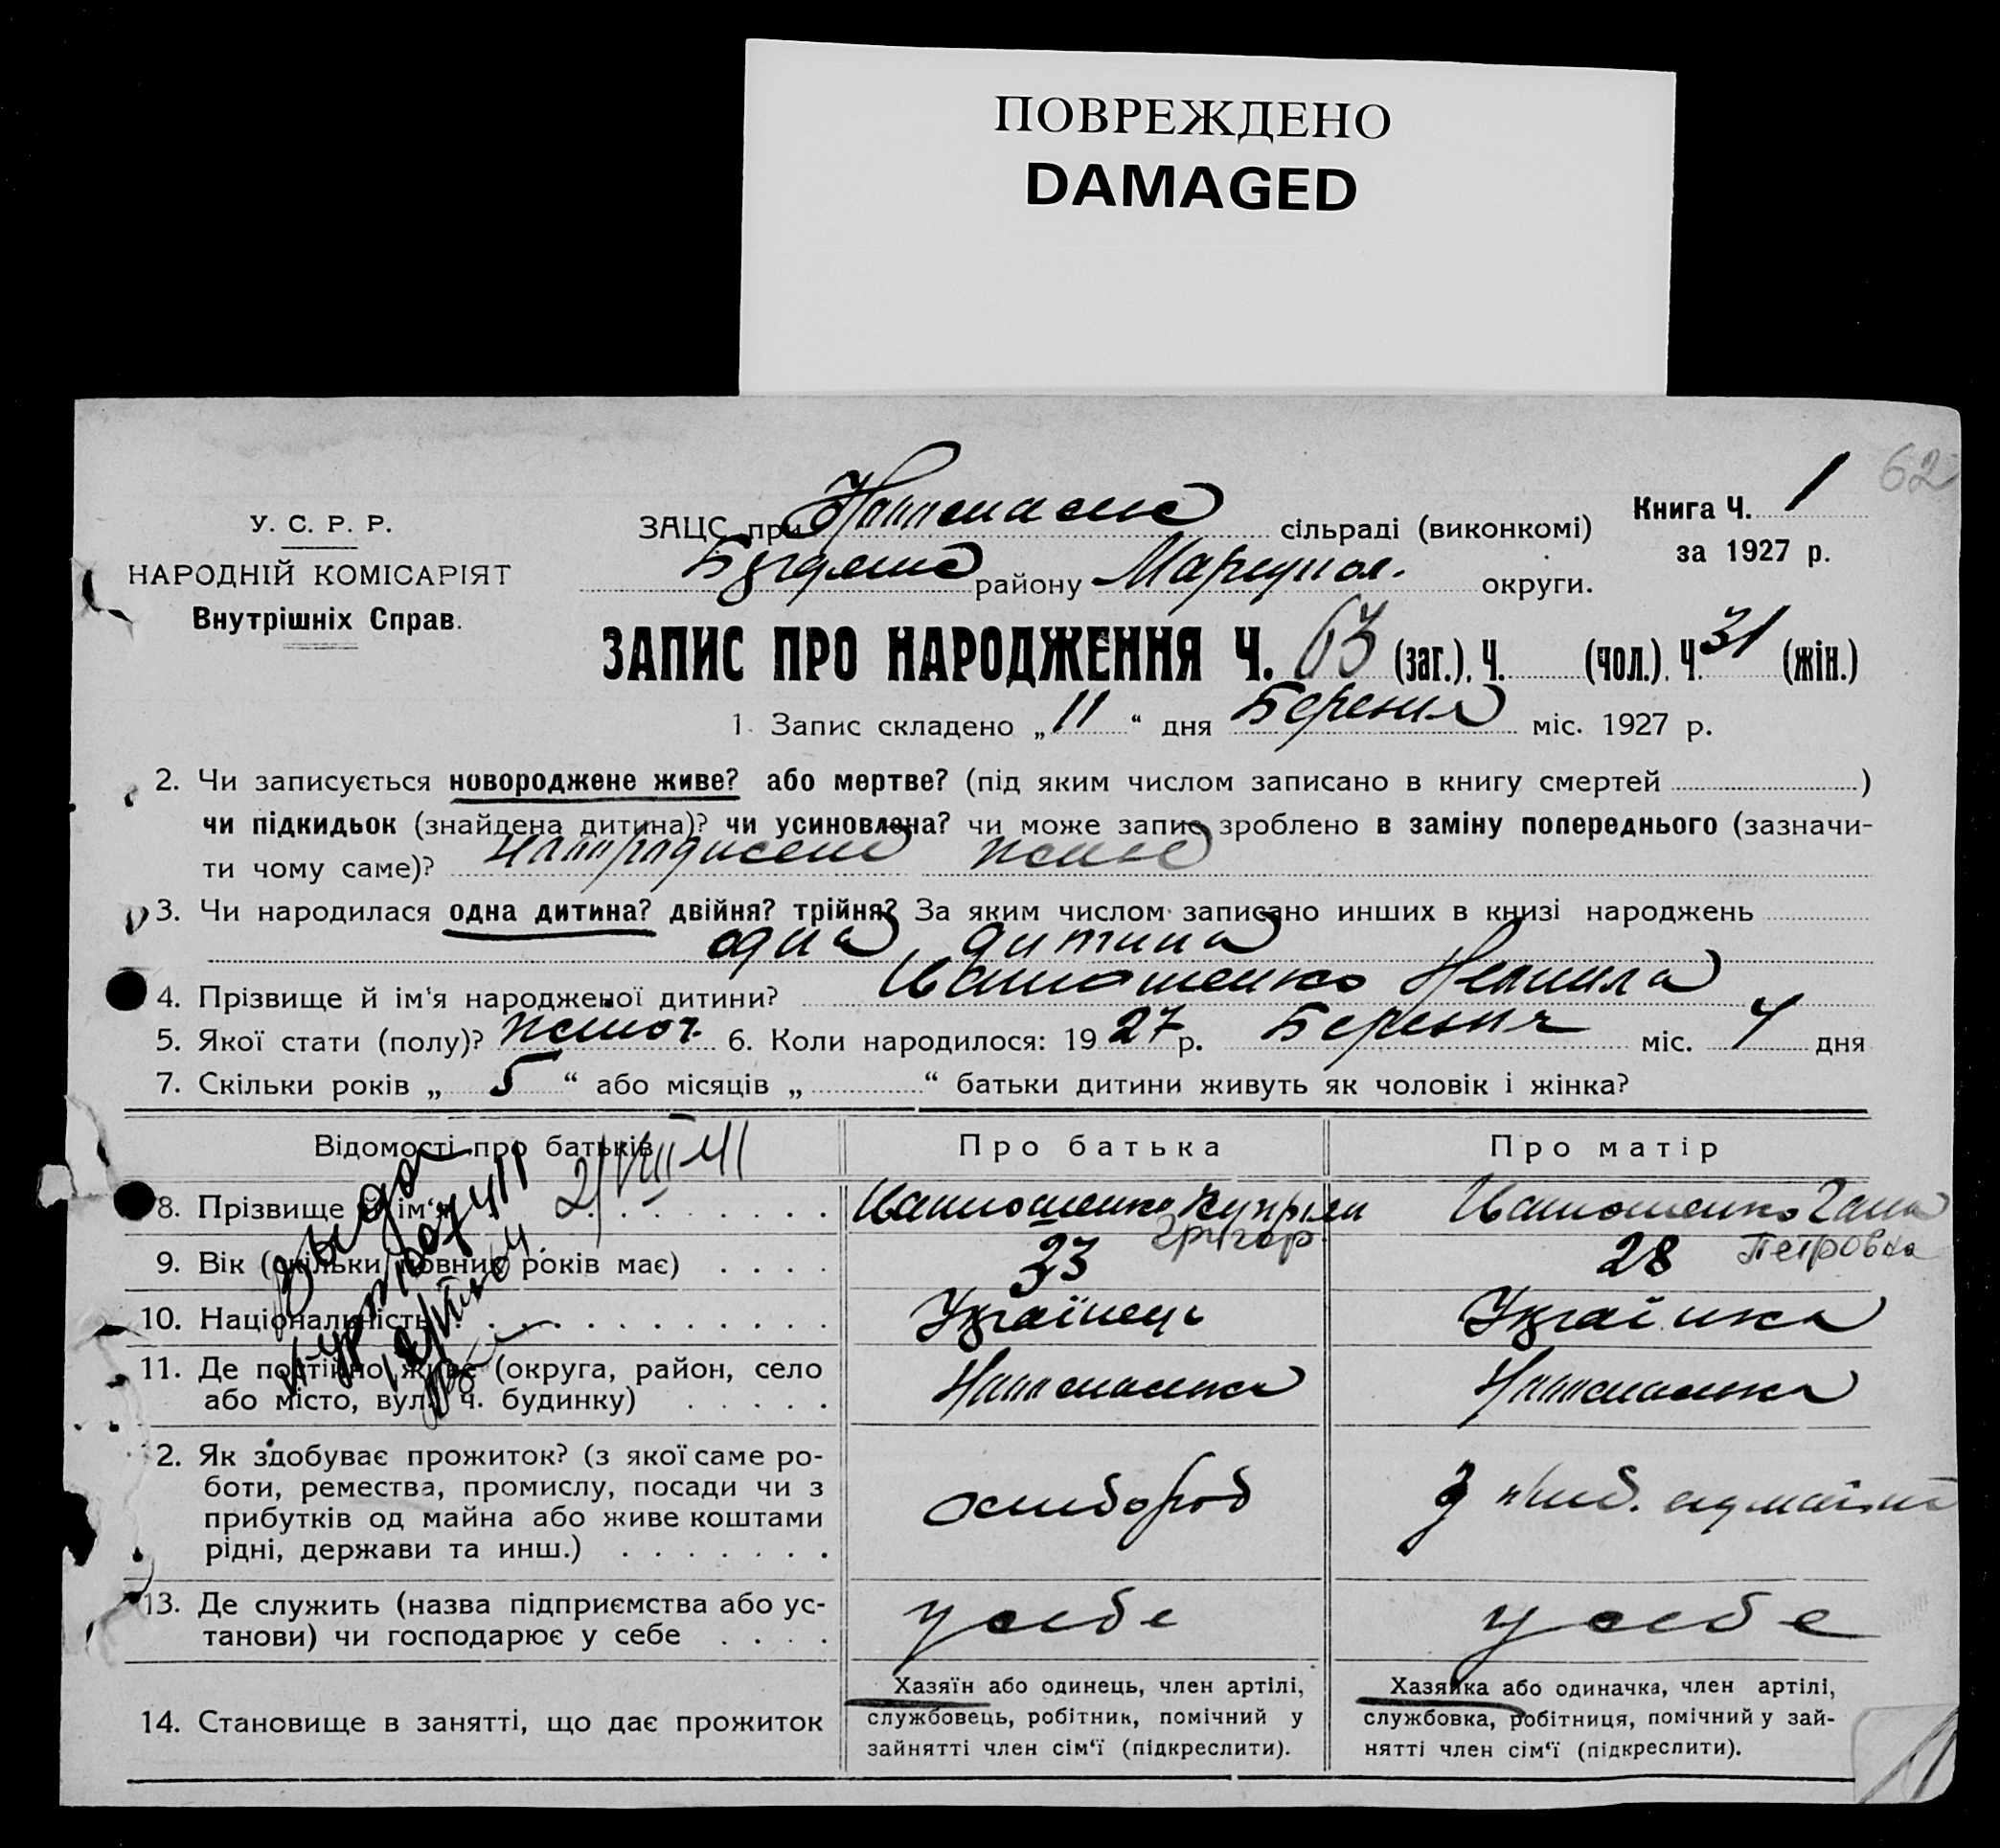 ПОВРЕЖДЕНО
DAMAGED
62
У. С. Р. Р.
НАРОДНІЙ КОМІСАРІЯТ
Внутрішніх Справ.
ЗАЦС при сільраді (виконкомі)
району Маріупол. округи.
Книга Ч. 1
за 1927 р.
ЗАПИС ПРО НАРОДЖЕННЯ Ч. 63 (заг.). Ч. (чол.). Ч. 31 (жін.)
1. Запис складено „ 11 “ дня Березня міс. 1927 р.
2. Чи записується новороджене живе? або мертве? (під яким числом записано в книгу смертей )
чи підкидьок (знайдена дитина)? чи усиновлена? чи може запис зроблено в заміну попереднього (зазначи-
ти чому саме)? живе
3. Чи народилася одна дитина? двійня? трійня? За яким числом записано инших в книзі народжень
одна дитина
4. Прізвище й ім'я народженої дитини?
5. Якої стати (полу)? жіноч. 6. Коли народилося: 1927 р. Березня міс. 4 дня
7. Скільки років „ 5 “ або місяців „ “ батьки дитини живуть як чоловік і жінка?
Відомості про батьків
Про батька
Про матір
2/VIII 41
8. Прізвище й ім‘я
Григор.
Петровна
9. Вік (скільки повних років має)
23
28
10. Національність
Українець
Українка
11. Де постійно живе (округа, район, село
або місто, вул., ч. будинку)
12. Як здобуває прожиток? (з якої саме ро-
боти, ремества, промислу, посади чи з
прибутків од майна або живе коштами
рідні, держави та инш.)
хлібороб
13. Де служить (назва підприємства або ус-
танови) чи господарює у себе
у себе
у себе
14. Становище в занятті, що дає прожиток
Хазяїн або одинець, член артілі,
службовець, робітник, помічний у
зайнятті член сім‘ї (підкреслити).
Хазяйка або одиначка, член артілі,
службовка, робітниця, помічний у зай-
нятті член сім‘ї (підкреслити).